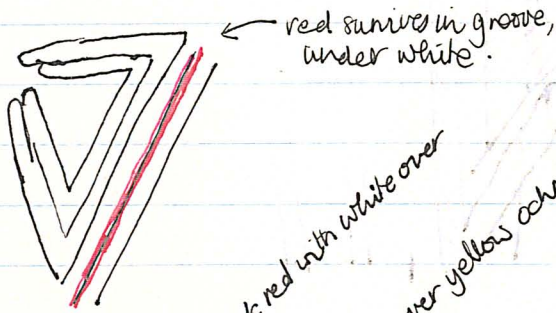 red survives in groove,
under white.
red with white over
over yellow ochre